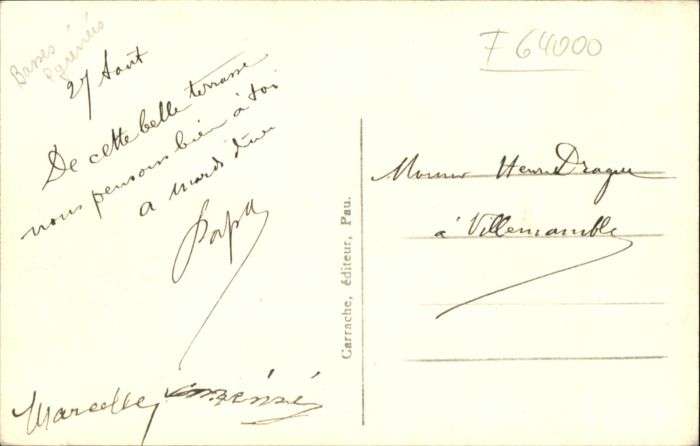 Basses
Pyrénées
F 64000
27 Août
De cette belle terrasse
nous pensons bien à toi
a mardi
Papa
Marcelle
Garrache, éditeur, Pau.
Henri
à Villemomble